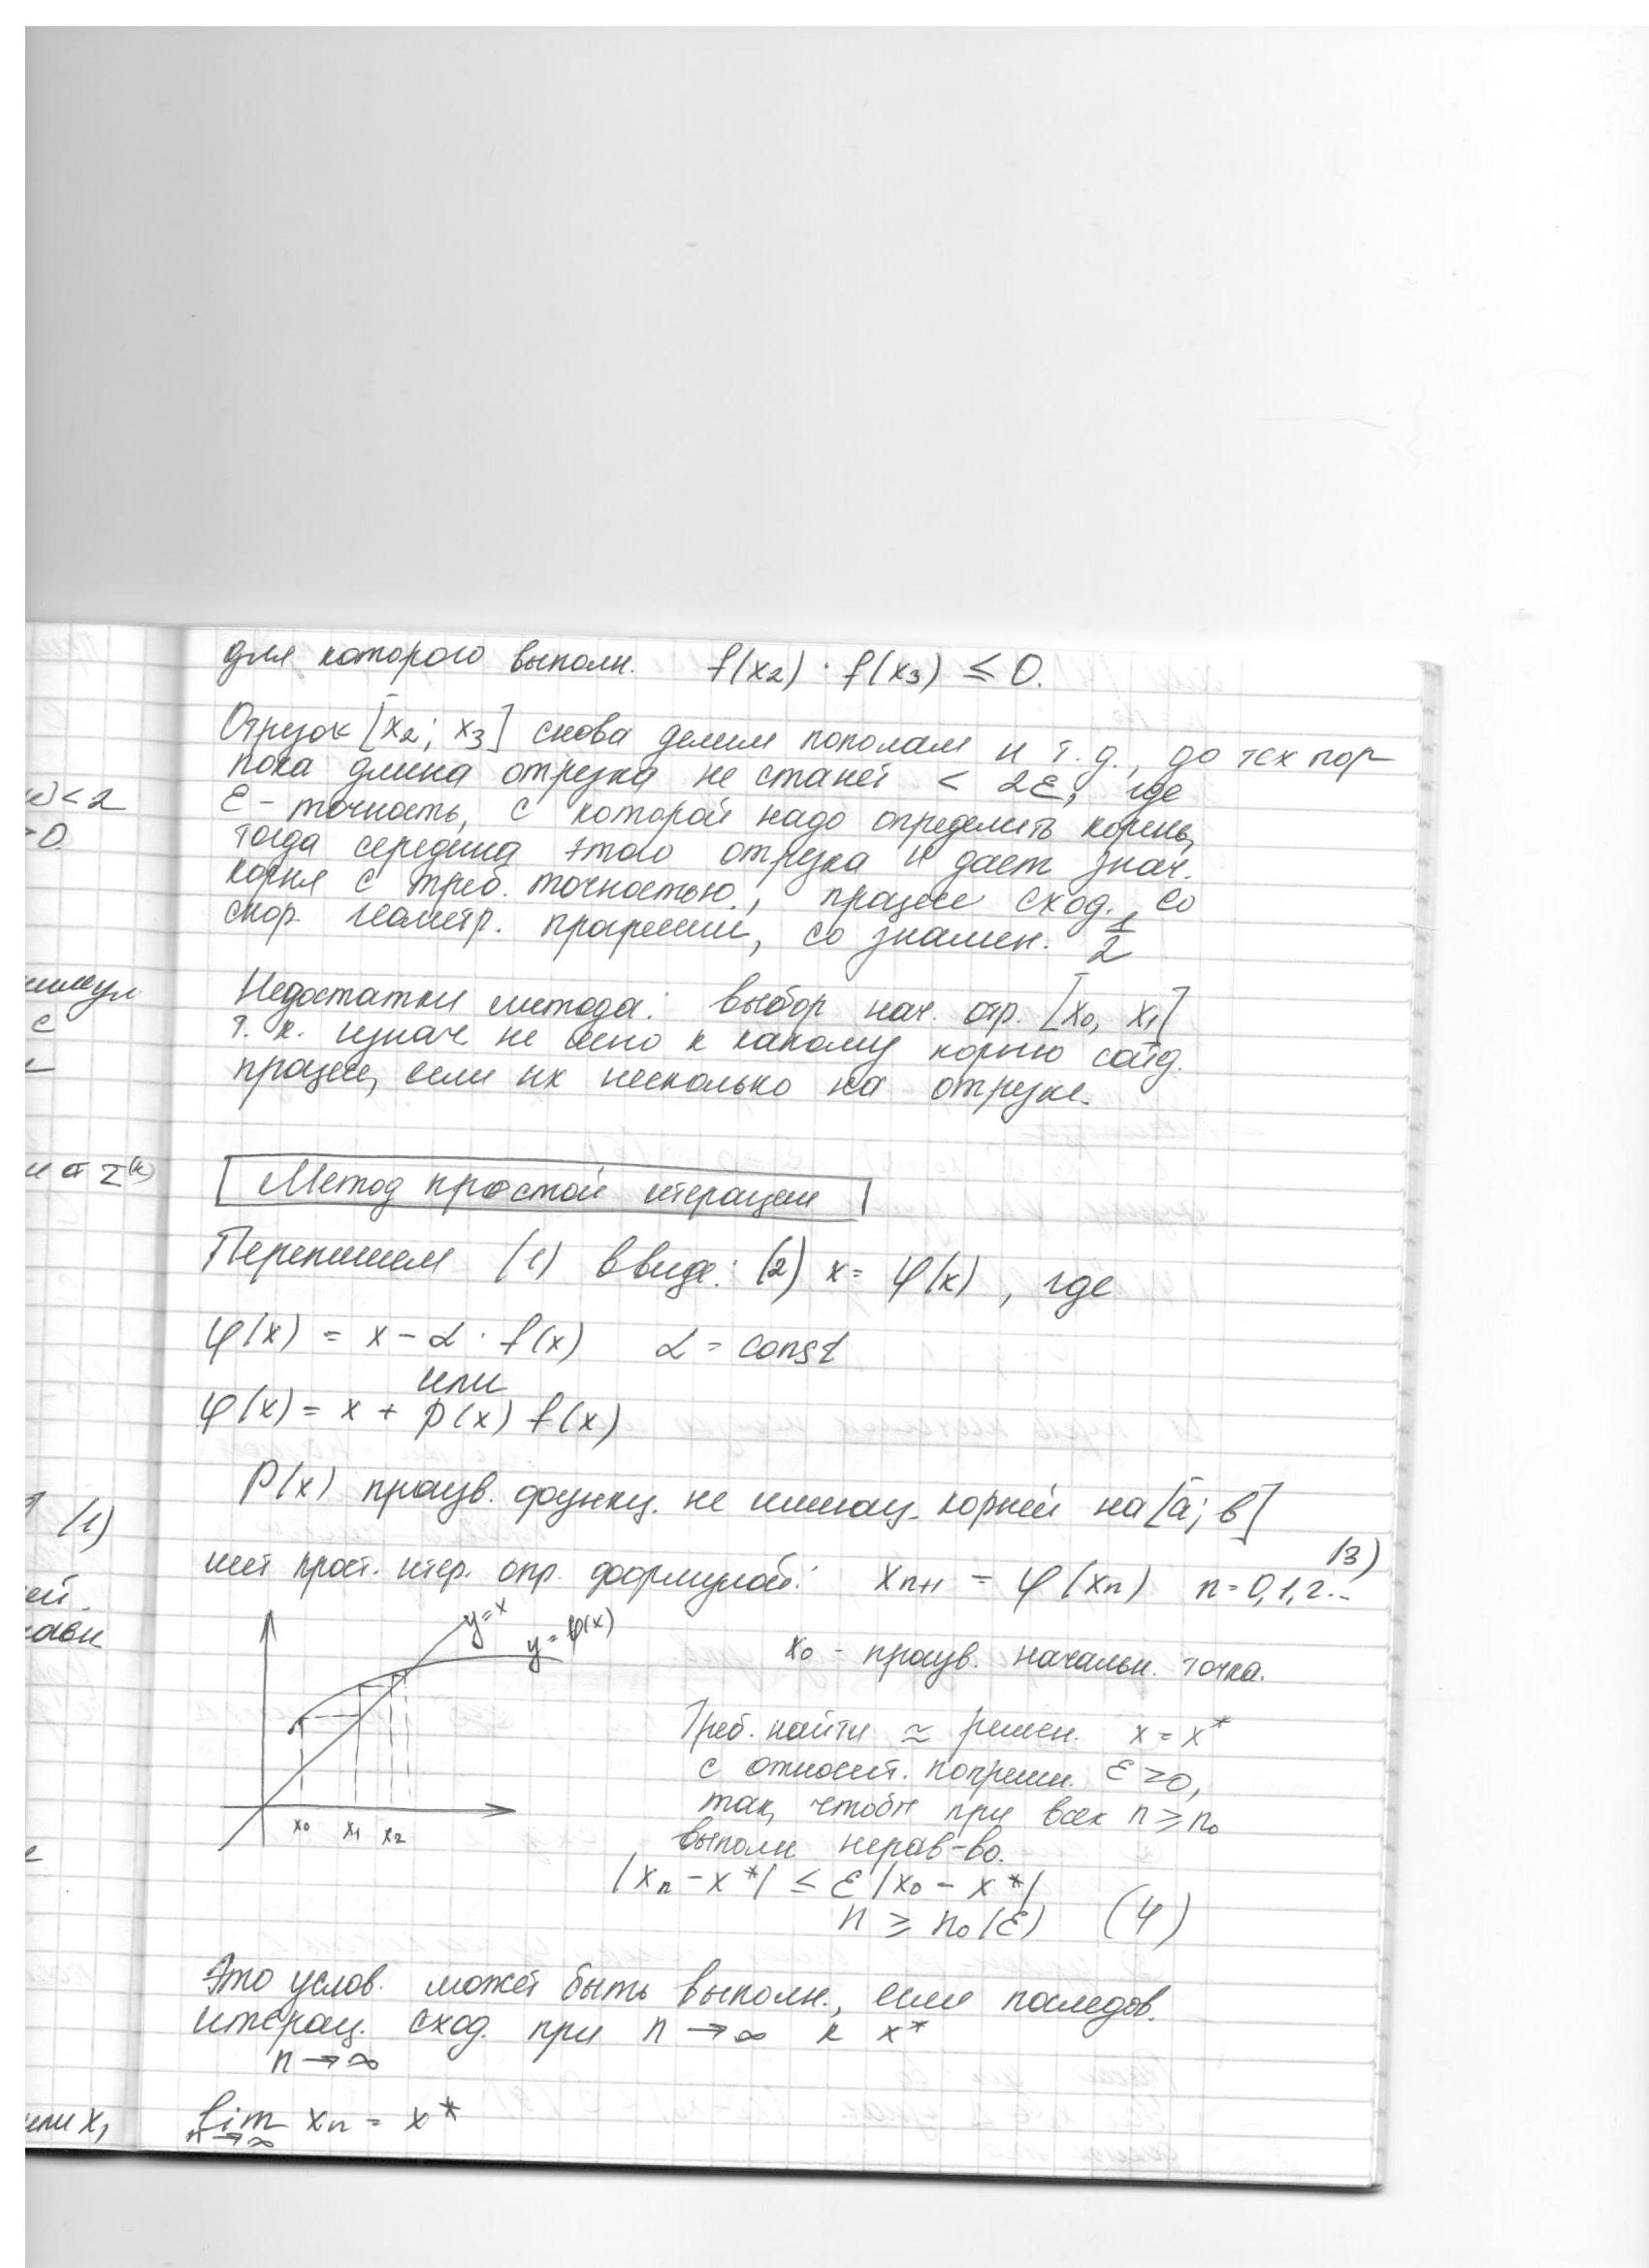 для которого выполн. f(x₂) · f(x₃) ≤ 0.
Отрезок [x₂; x₃] снова делим пополам и т.д., до тех пор
пока длина отрезка не станет < 2ε, где
ε - точность, с которой надо определить корень,
тогда середина этого отрезка и дает знач.
корня с треб. точностью., процесс сход. со
скор. геометр. прогрессии, со знамен. 1/2
Недостатки метода: выбор нач. отр. [x₀, x₁]
т. к. изнач. не ясно к какому корню сойд.
процесс, если их несколько на отрезке.
Метод простой итерации
Перепишем (1) ввиде: (2) x = φ(x) , где
φ(x) = x - α · f(x) α = const
или
φ(x) = x + ρ(x) f(x)
ρ(x) произв. функц. не имеющ. корней на [a; b]
мет прост. итер. опр. формулой: xₙ₊₁ = φ(xₙ) n = 0,1,2...
(3)
y = x
y = φ(x)
x₀ - произв. начальн. точка.
Треб. найти ≃ решен. x = x*
с относит. погрешн. ε > 0,
так, чтобы при всех n ≥ n₀
выполн нерав-во.
x₀ x₁ x₂
|xₙ - x*| ≤ ε |x₀ - x*|
n ≥ n₀(ε) (4)
Это услов. может быть выполн., если последов.
итерац. сход. при n → ∞ к x*
n → ∞
lim xₙ = x*
n → ∞
< 2
0.
с
(1)
или x₁